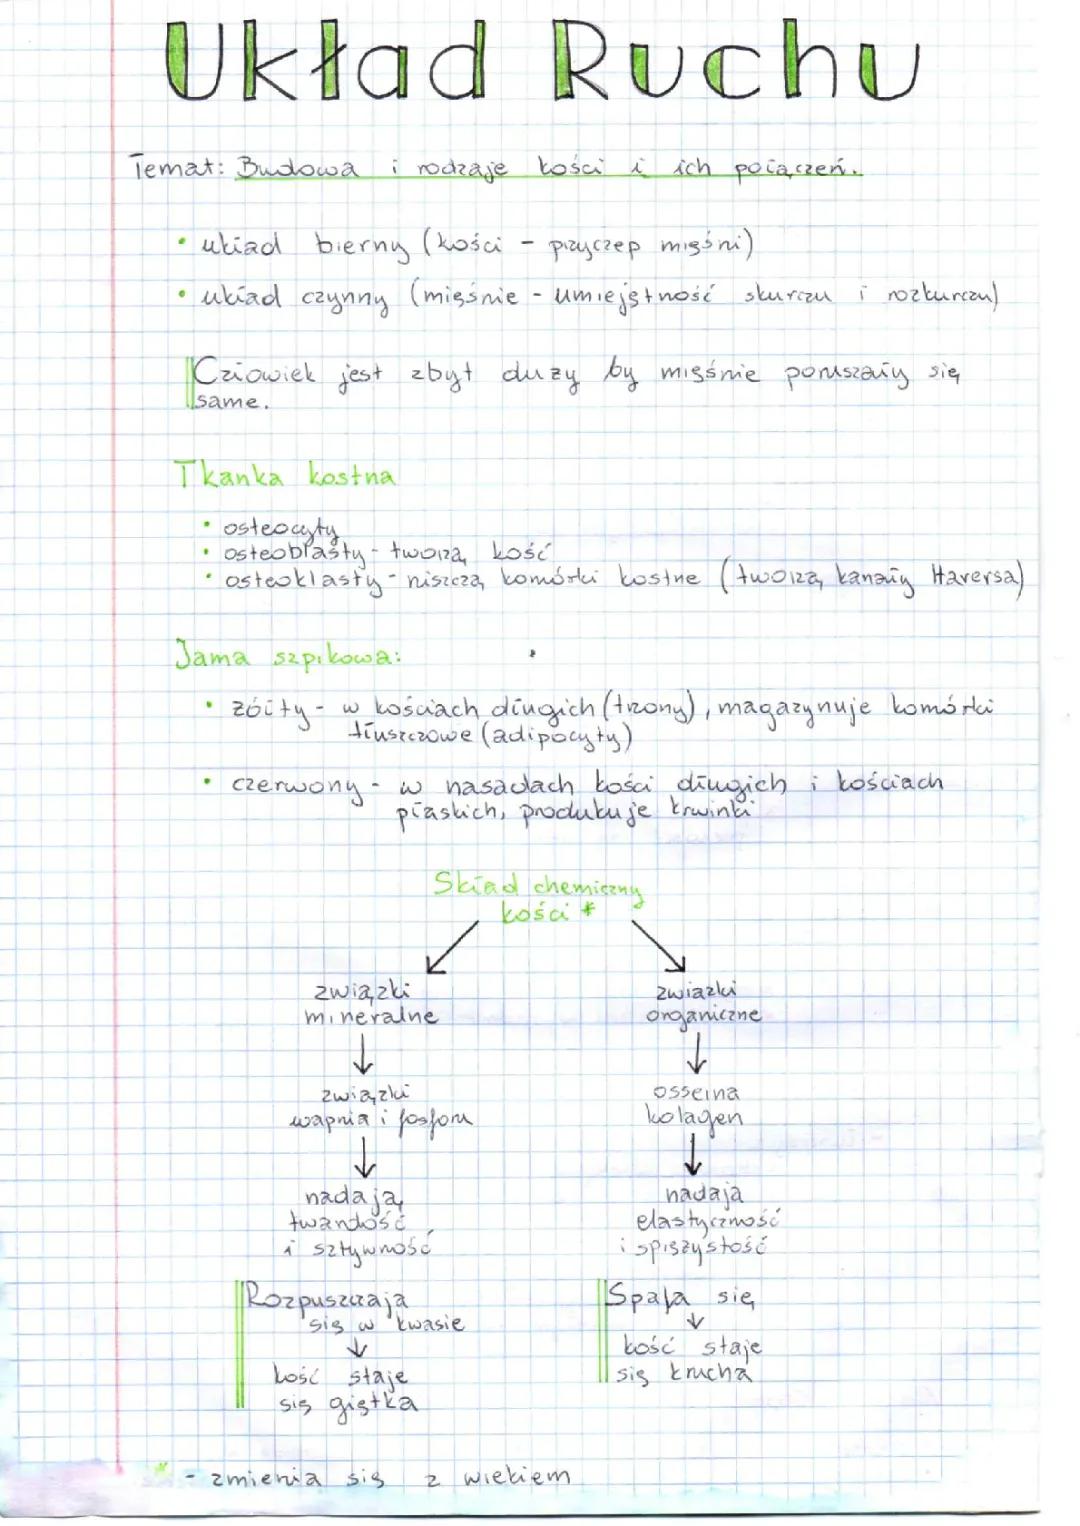 Układ Ruchu
Temat: Budowa i rodzaje kości i ich połączeń.
• układ bierny (kości - przyczep mięśni)
• układ czynny (mięśnie - umiejętność skurczu i rozkurczu)
Człowiek jest zbyt duży by mięśnie poruszały się
same.
Tkanka kostna
• osteocyty
• osteoblasty - tworzą kość
• osteoklasty - niszczą komórki kostne (tworzą kanały Haversa)
Jama szpikowa:
• żółty - w kościach długich (trzony), magazynuje komórki
tłuszczowe (adipocyty)
• czerwony - w nasadach kości długich i kościach
płaskich, produkuje krwinki
Skład chemiczny
kości *
związki
mineralne
związki
wapnia i fosforu
nadają
twardość
i sztywność
Rozpuszczają
się w kwasie
kość staje
się giętka
związki
organiczne
osseina
kolagen
nadają
elastyczność
i sprężystość
Spala się
kość staje
się krucha
* - zmienia się z wiekiem